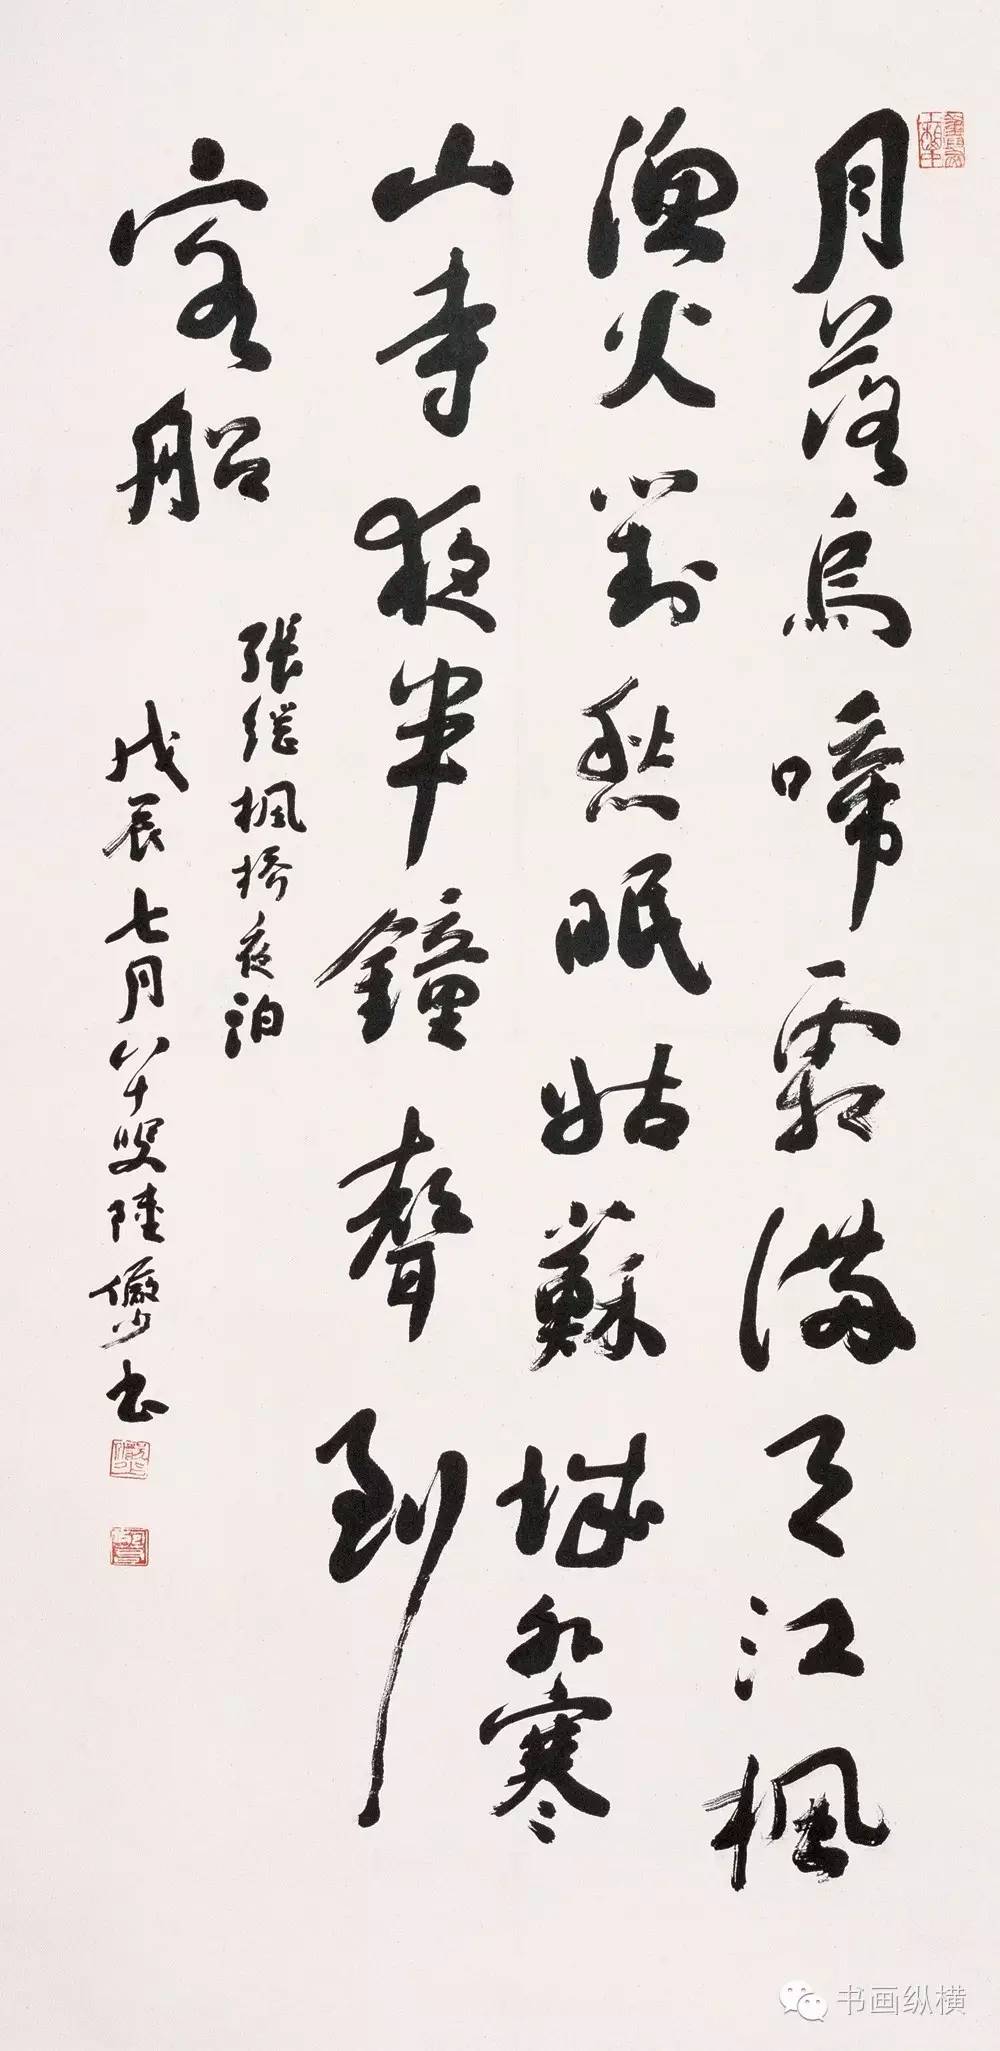 月落烏啼霜滿天江楓
漁火對愁眠姑蘇城外寒
山寺夜半鐘聲到
客船
張继楓橋夜泊
戊辰七月八十叟陸儼少书
书画纵横